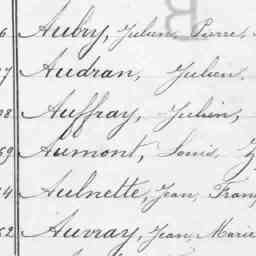 6 Aubry, Julien, Pierre,
7 Audran, Julien,
8 Auffray, Julien,
59 Aumont, Louis,
4 Aulnette, Jean, Fran
52 Auvray, Jean, Marie